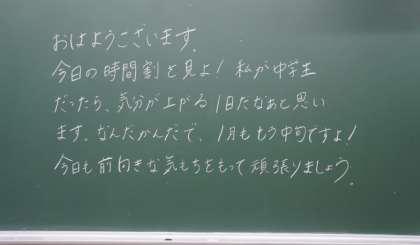 おはようございます。
今日の時間割を見よ! 私が中学生
だったら、気分が上がる1日だなぁと思い
ます。なんだかんだで、1月ももう中旬ですよ!
今日も前向きな気もちをもって頑張りましょう。